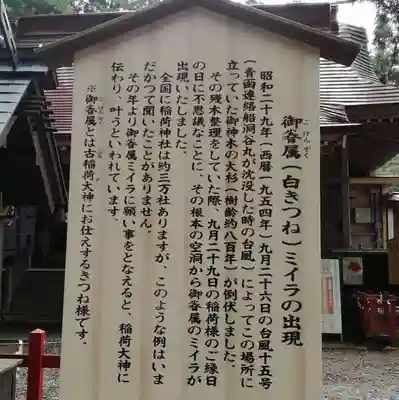 御沓属(白きつね)ミイラの出現
昭和二十九年(西暦一九五四年)九月二十六日の台風十五号
(青函連絡船洞谷丸が沈没した時の台風)によってこの場所に
立っていた御神木の大杉(樹齢約八百年)が倒伏しました。
その残木整理をしていた際、九月二十九日の稲荷様のご縁日
の日に不思議なことに、その根本の空洞から御沓属のミイラが
出現いたしました。
全国に稲荷神社は約三万社ありますが、このような例はいま
だかつて聞いたことがありません。
その年より御沓属ミイラに願い事をとなえると、稲荷大神に
伝わり、叶うといわれています。
※御沓属とは古稲荷大神にお仕えするきつね様です。